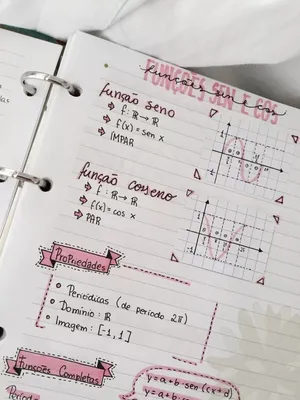 FUNÇÕES SEN E COS
funções sen e cos
função seno
→ f: ℝ → ℝ
→ f(x) = sen x
→ ÍMPAR
função cosseno
→ f: ℝ → ℝ
→ f(x) = cos x
→ PAR
Propriedades
• Periódicas (de período 2π)
• Domínio: ℝ
• Imagem: [-1, 1]
Funções Completas
y = a + b · sen (cx + d)
Período